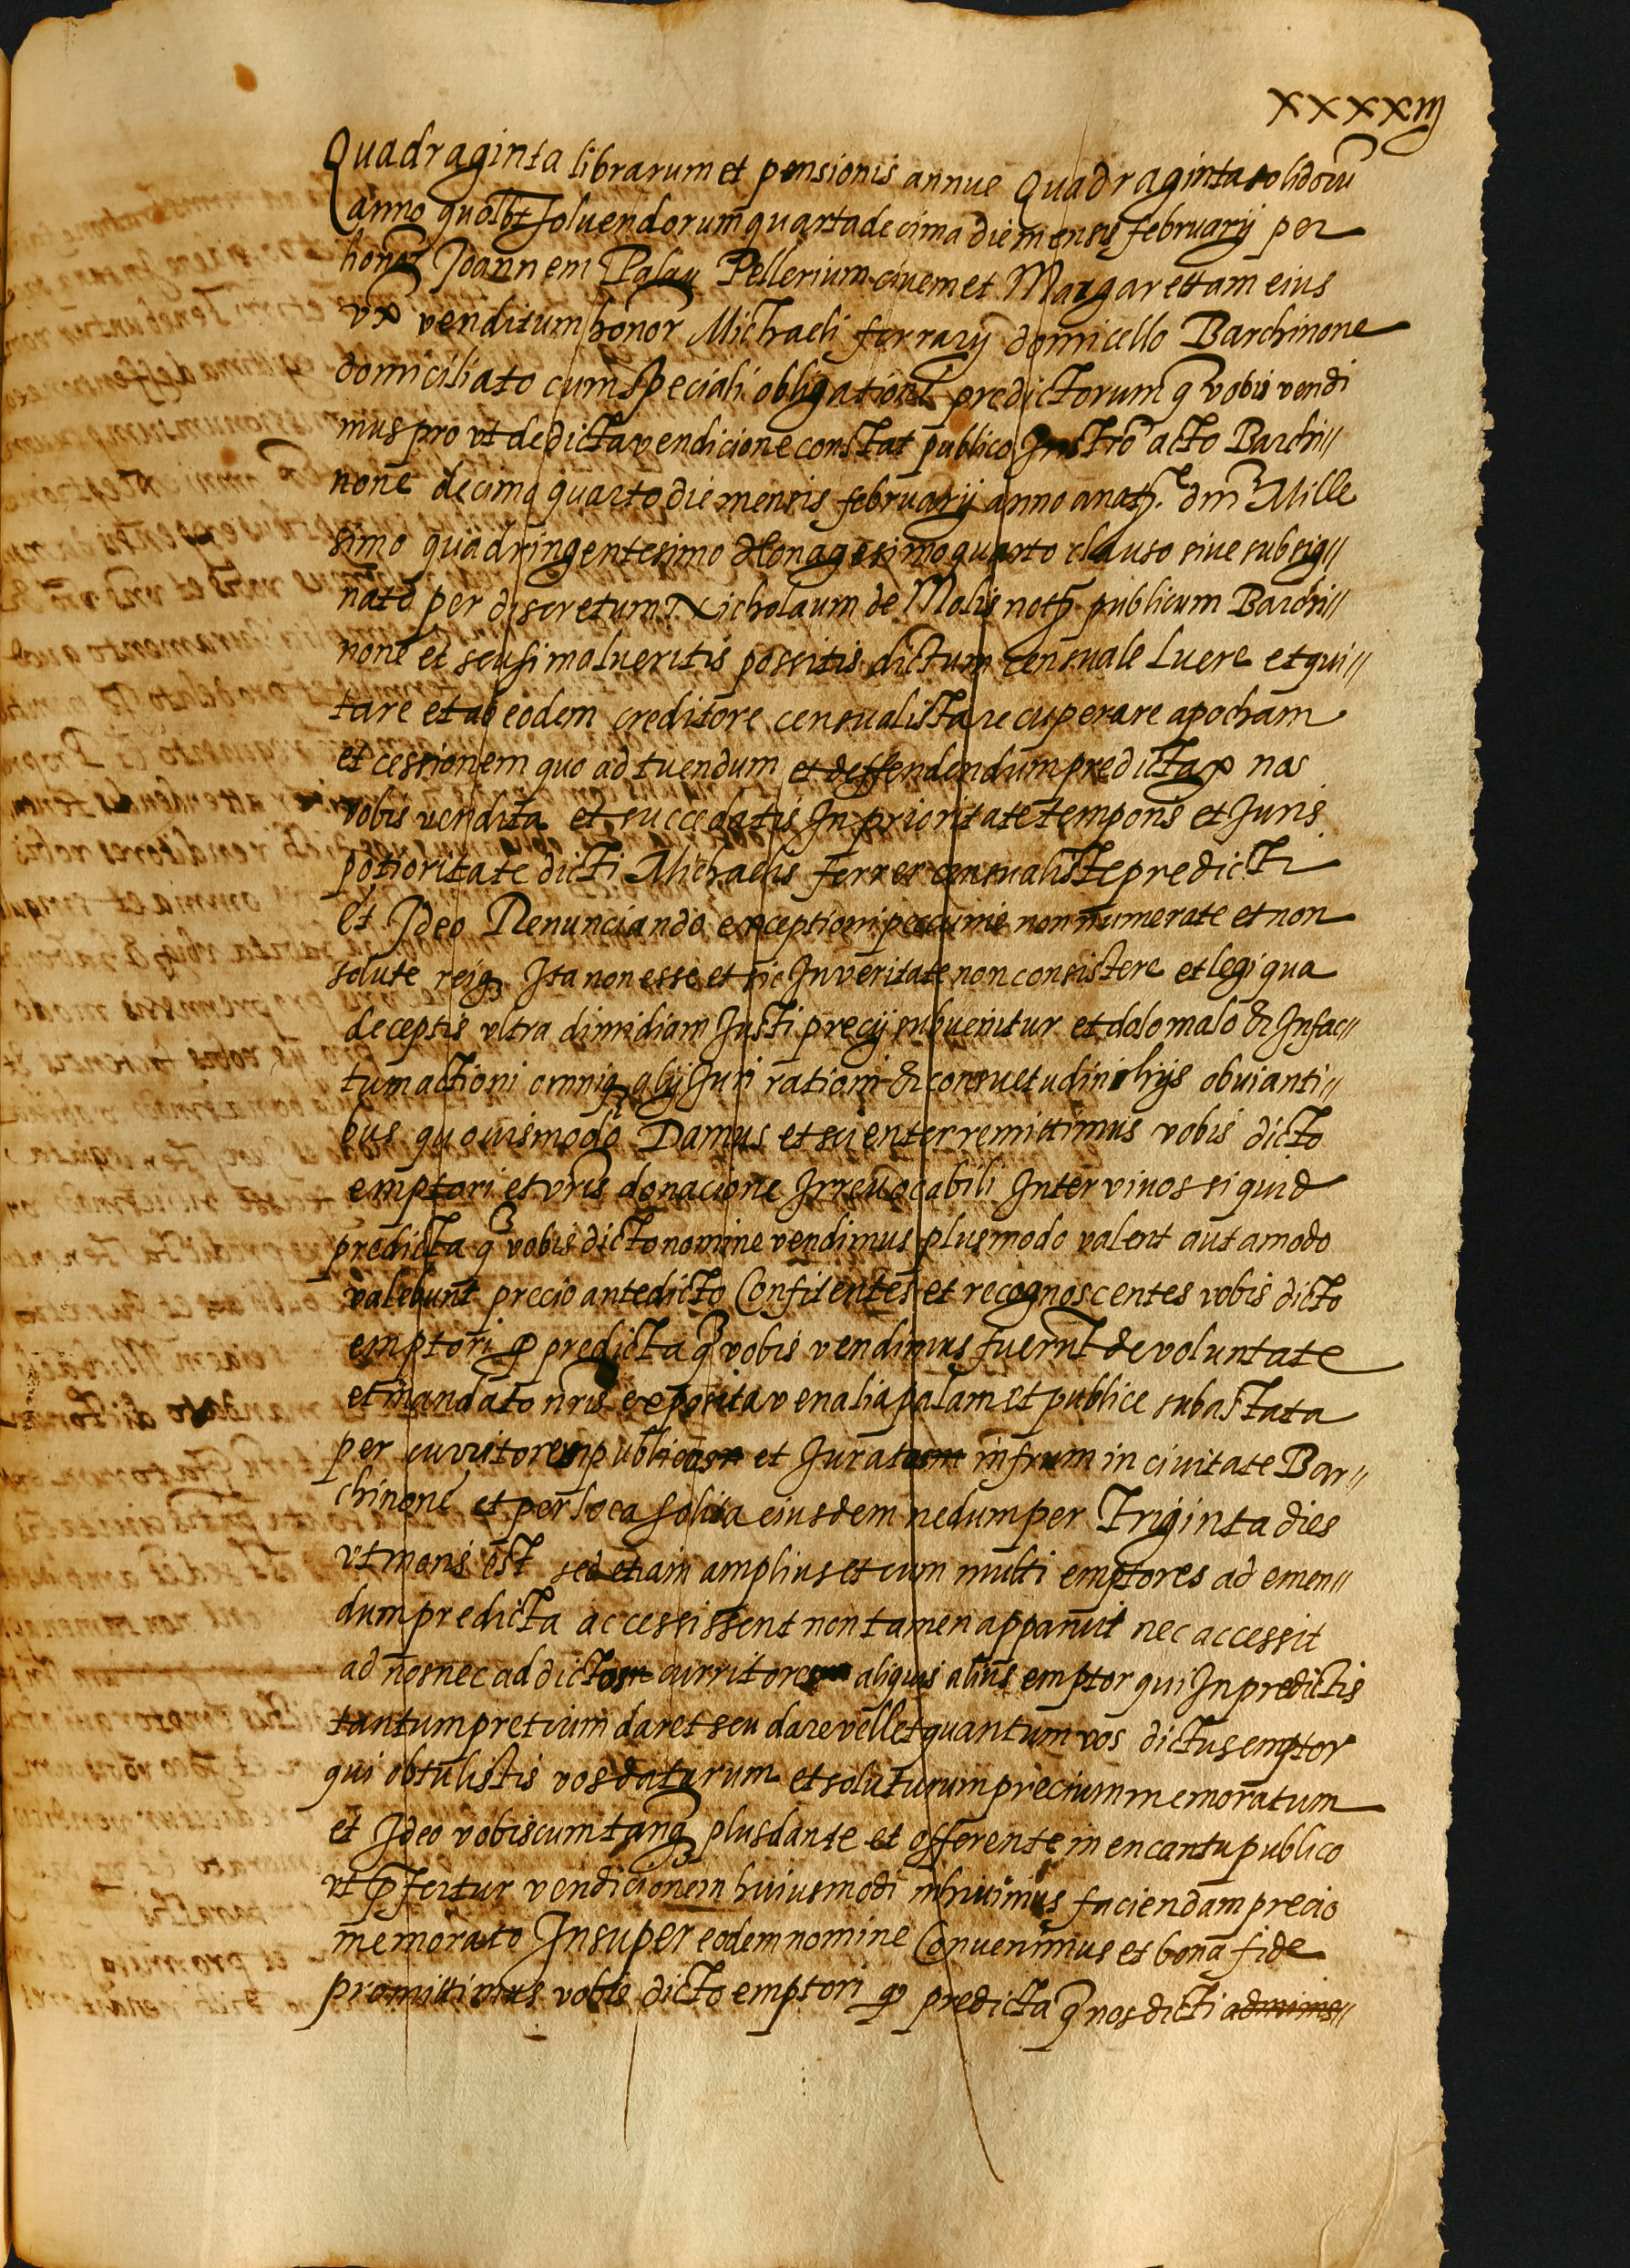 xxxxiij
Quadraginta librarum et pensionis annue Quadraginta solidorū
anno quolbt soluendorum quartadecima die mensis february per
honor Joannem Palau Pellerium ciuem et Margarettam eius
vx venditum honor Michaeli ferrary domicello Barchinone
domiciliato cum speciali obligatione predictorum q̄ vobis vendi
mus pro vt de dicta vendicione constat publico Instro acto Barchi//
none decimaquarto die mensis february anno anath. dm̄ Mille
simo quadringentesimo Nonagesimoquarto clauso siue subsig//
nato per discretum Nicholaum de Molis noth publicum Barchi//
none et seu si malueritis possitis dictum censuale Luere et qui//
tare et ab eodem creditore censualista recuperare apocham
et cessionem quo ad tuendum et deffendendum predicta p nos
vobis vendita et succedatis In prioritate temporis et Juris
potioritate dicti Michaelis ferrer censualiste predicti
Et Ideo Renunciando exceptioni peccunie non numerate et non
solute reiq3 Ita non esse et sic In veritate non consistere et legi qua
deceptis vltra dimidiam Justi precij subuenitur et dolo malo & Infac//
tum actioni omniq3 alij Juri rationi & consuetudini hijs obuianti//
bus quouismodo Damus et scienter remittimus vobis dicto
emptori et vris donacione Irreuocabili Inter viuos siquid
predicta q̄ vobis dicto nomine vendimus plus modo valent aut amodo
valebunt precio antedicto Confitentes et recognoscentes vobis dicto
emptori q predicta q̄ vobis vendimus fuerūt de voluntate
et mandato nris exposita venalia palam et publice subastata
per curritorem publicos et Juratos infrum in ciuitate Bar//
chinone et per loca solita eiusdem nedum per Triginta dies
vt moris est sed etiam amplius et cum multi emptores ad emen//
dum predicta accessissent non tamen apparuit nec accessit
ad nos nec ad dictos curritores aliquis alius emptor qui In predictis
tantum pretium daret seu dare vellet quantum vos dictus emptor
qui obtulistis vos daturum et soluturum precium memoratum
et Ideo vobiscum tanq3 plus dante et offerente in encantu publico
vt p̄fertur vendicionem huiusmodi inhiuimus faciendam precio
memorato Insuper eodem nomine Conuenimus et bona fide
promittimus vobis dicto emptori q predicta q̄ nos dicti adminis//